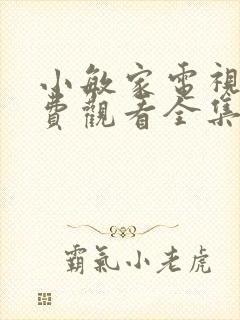 小敏家電視
費觀看全集
霸氣小老虎